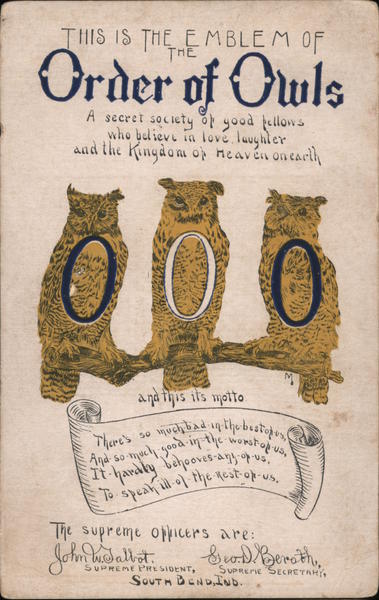 THIS IS THE EMBLEM OF
THE
Order of Owls
A secret society of good fellows
who believe in love, laughter
and the Kingdom of Heaven on earth
O O O
M
and this its motto
There's so much bad in the best of us,
And so much good in the worst of us,
It hardly behooves any of us,
To speak ill of the rest of us.
The supreme officers are:
John W. Talbot. Geo. D. Beroth,
SUPREME PRESIDENT, SUPREME SECRETARY,
SOUTH BEND, IND.